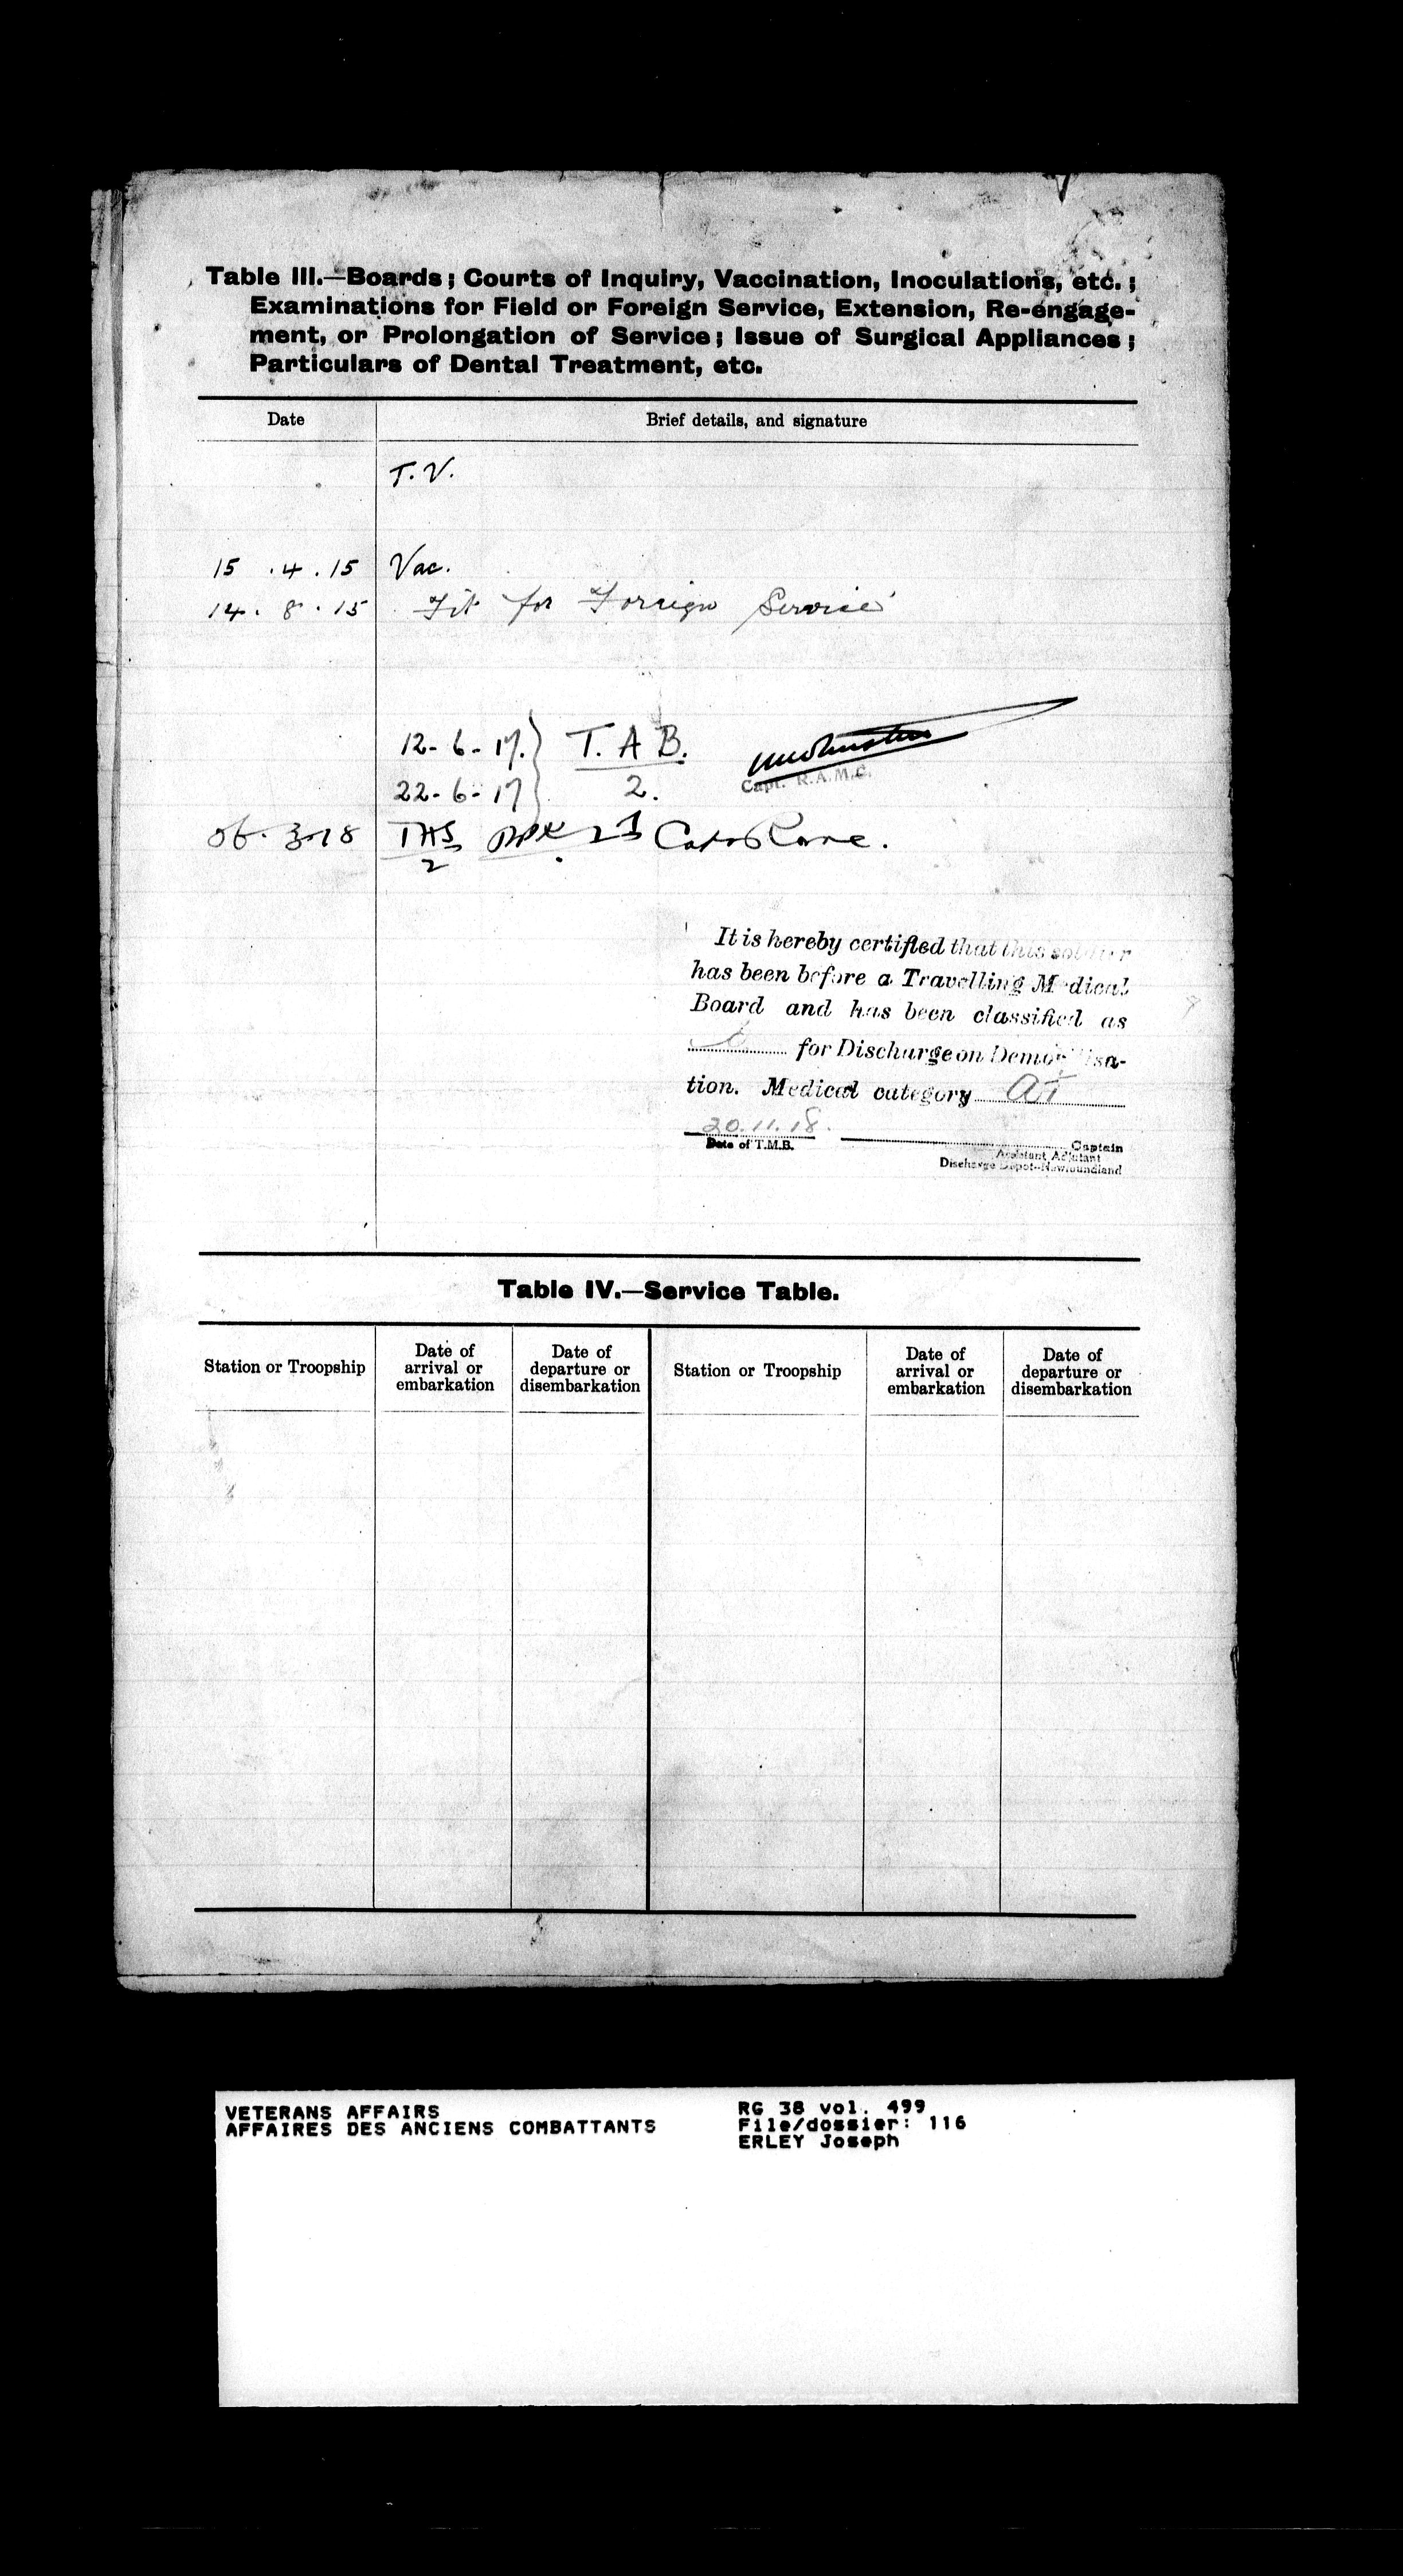 Table III.—Boards; Courts of Inquiry, Vaccination, Inoculations, etc.;
Examinations for Field or Foreign Service, Extension, Re-engage-
ment, or Prolongation of Service; Issue of Surgical Appliances;
Particulars of Dental Treatment, etc.
Date Brief details, and signature
T.V.
15 .4 .15 Vac.
14. 8 .15 Fit for Foreign Service
12-6-17. } T. A B.
22-6-17 } 2.
Capt. R.A.M.C.
3.18
2
It is hereby certified that this soldier
has been before a Travelling Medical
Board and has been classified as
for Discharge on Demobilisa-
tion. Medical category A I
20.11.18.
Date of T.M.B. Captain
Assistant Adjutant
Discharge Depot—Newfoundland
Table IV.—Service Table.
Station or Troopship Date of arrival or embarkation Date of departure or disembarkation Station or Troopship Date of arrival or embarkation Date of departure or disembarkation
VETERANS AFFAIRS RG 38 vol. 499
AFFAIRES DES ANCIENS COMBATTANTS File/dossier: 116
ERLEY Joseph